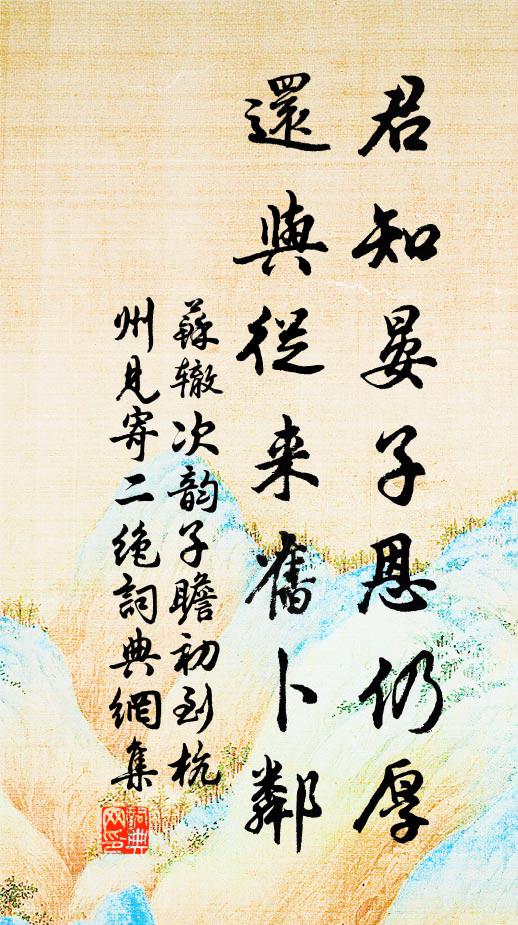 君知晏子恩仍厚
還與從来舊卜鄰
蘇辙次韵子瞻初到杭
州見寄二绝詞典網集
詞典
网印